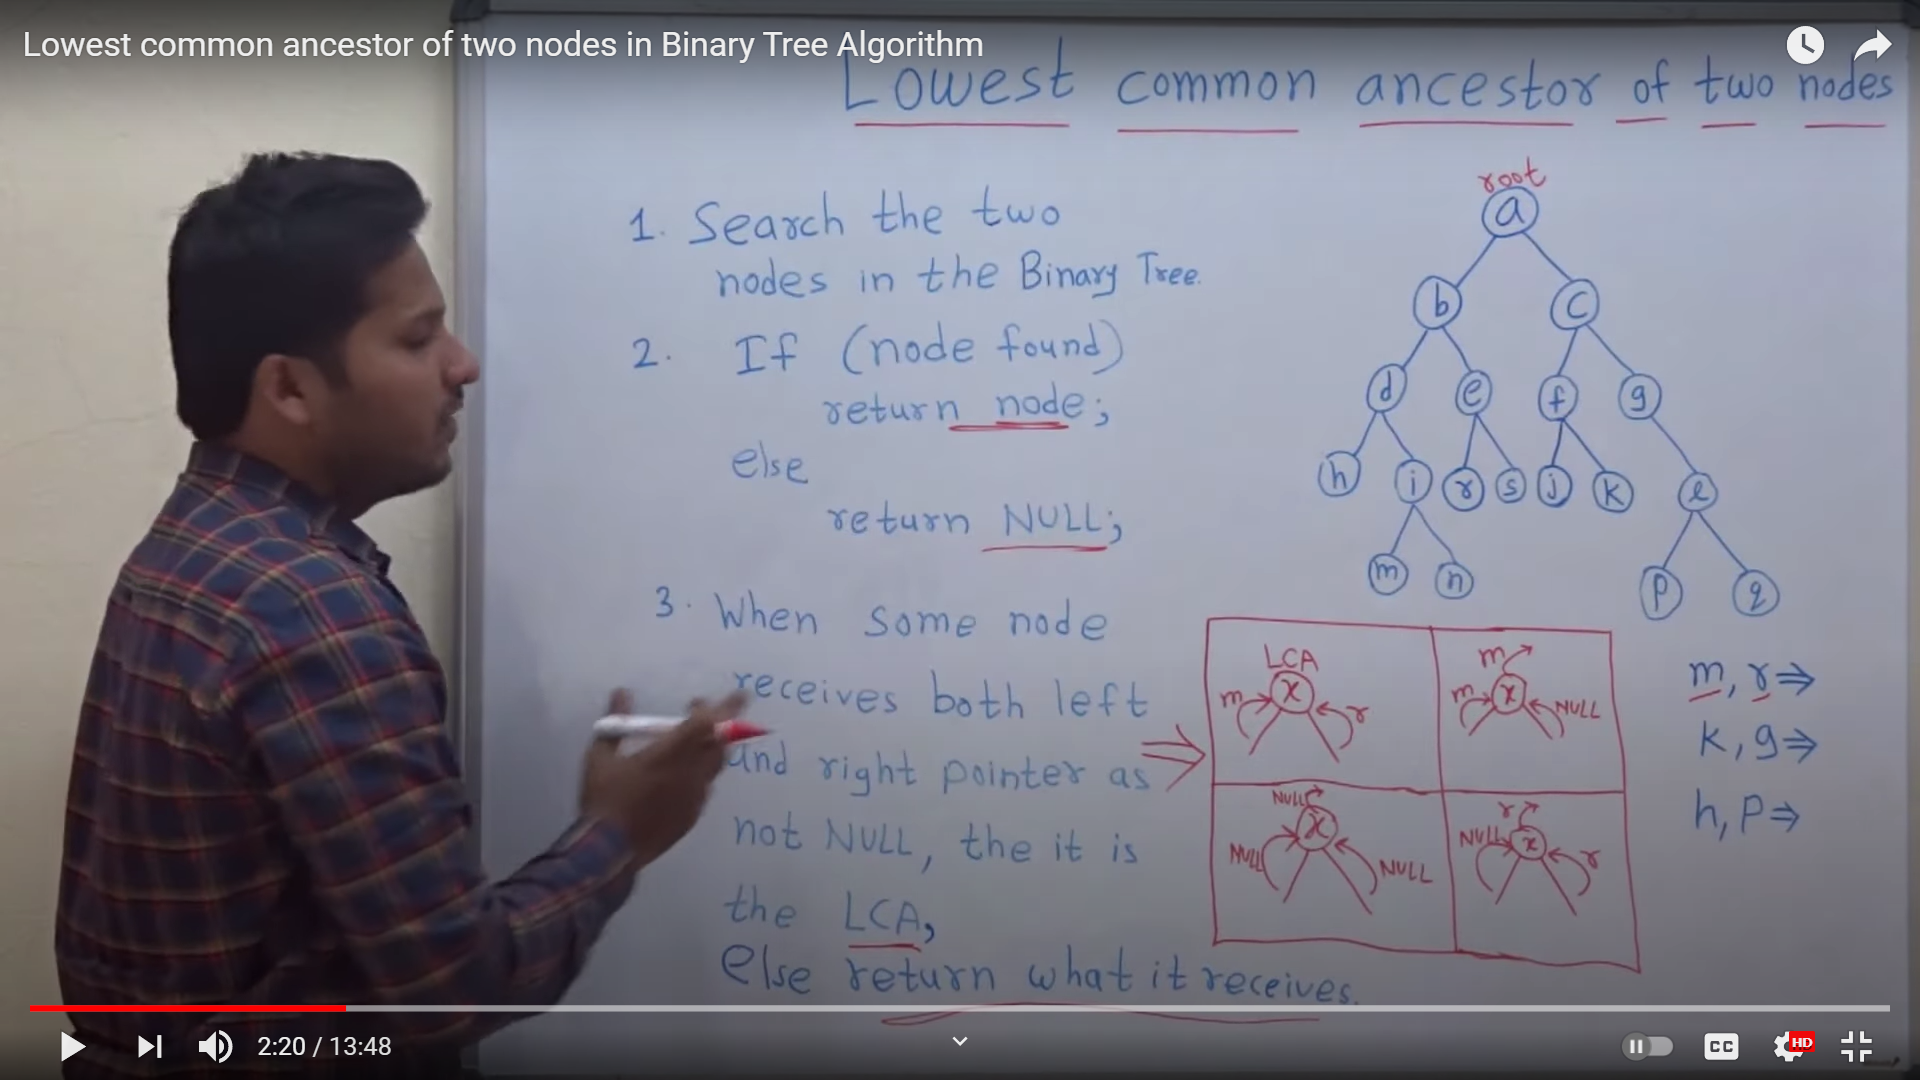 Lowest common ancestor of two nodes in Binary Tree Algorithm
Lowest common ancestor of two nodes
1. Search the two
nodes in the Binary Tree.
2. If (node found)
return node;
else
return NULL;
3. When some node
receives both left
and right pointer as
not NULL, the it is
the LCA,
Else return what it receives.
root
a
b c
d e f g
h i r s j k l
m n p q
LCA
m x r
m
m x NULL
NULL
NULL x NULL
r
NULL x r
m, r ⇒
k, g ⇒
h, p ⇒
2:20 / 13:48
CC
HD